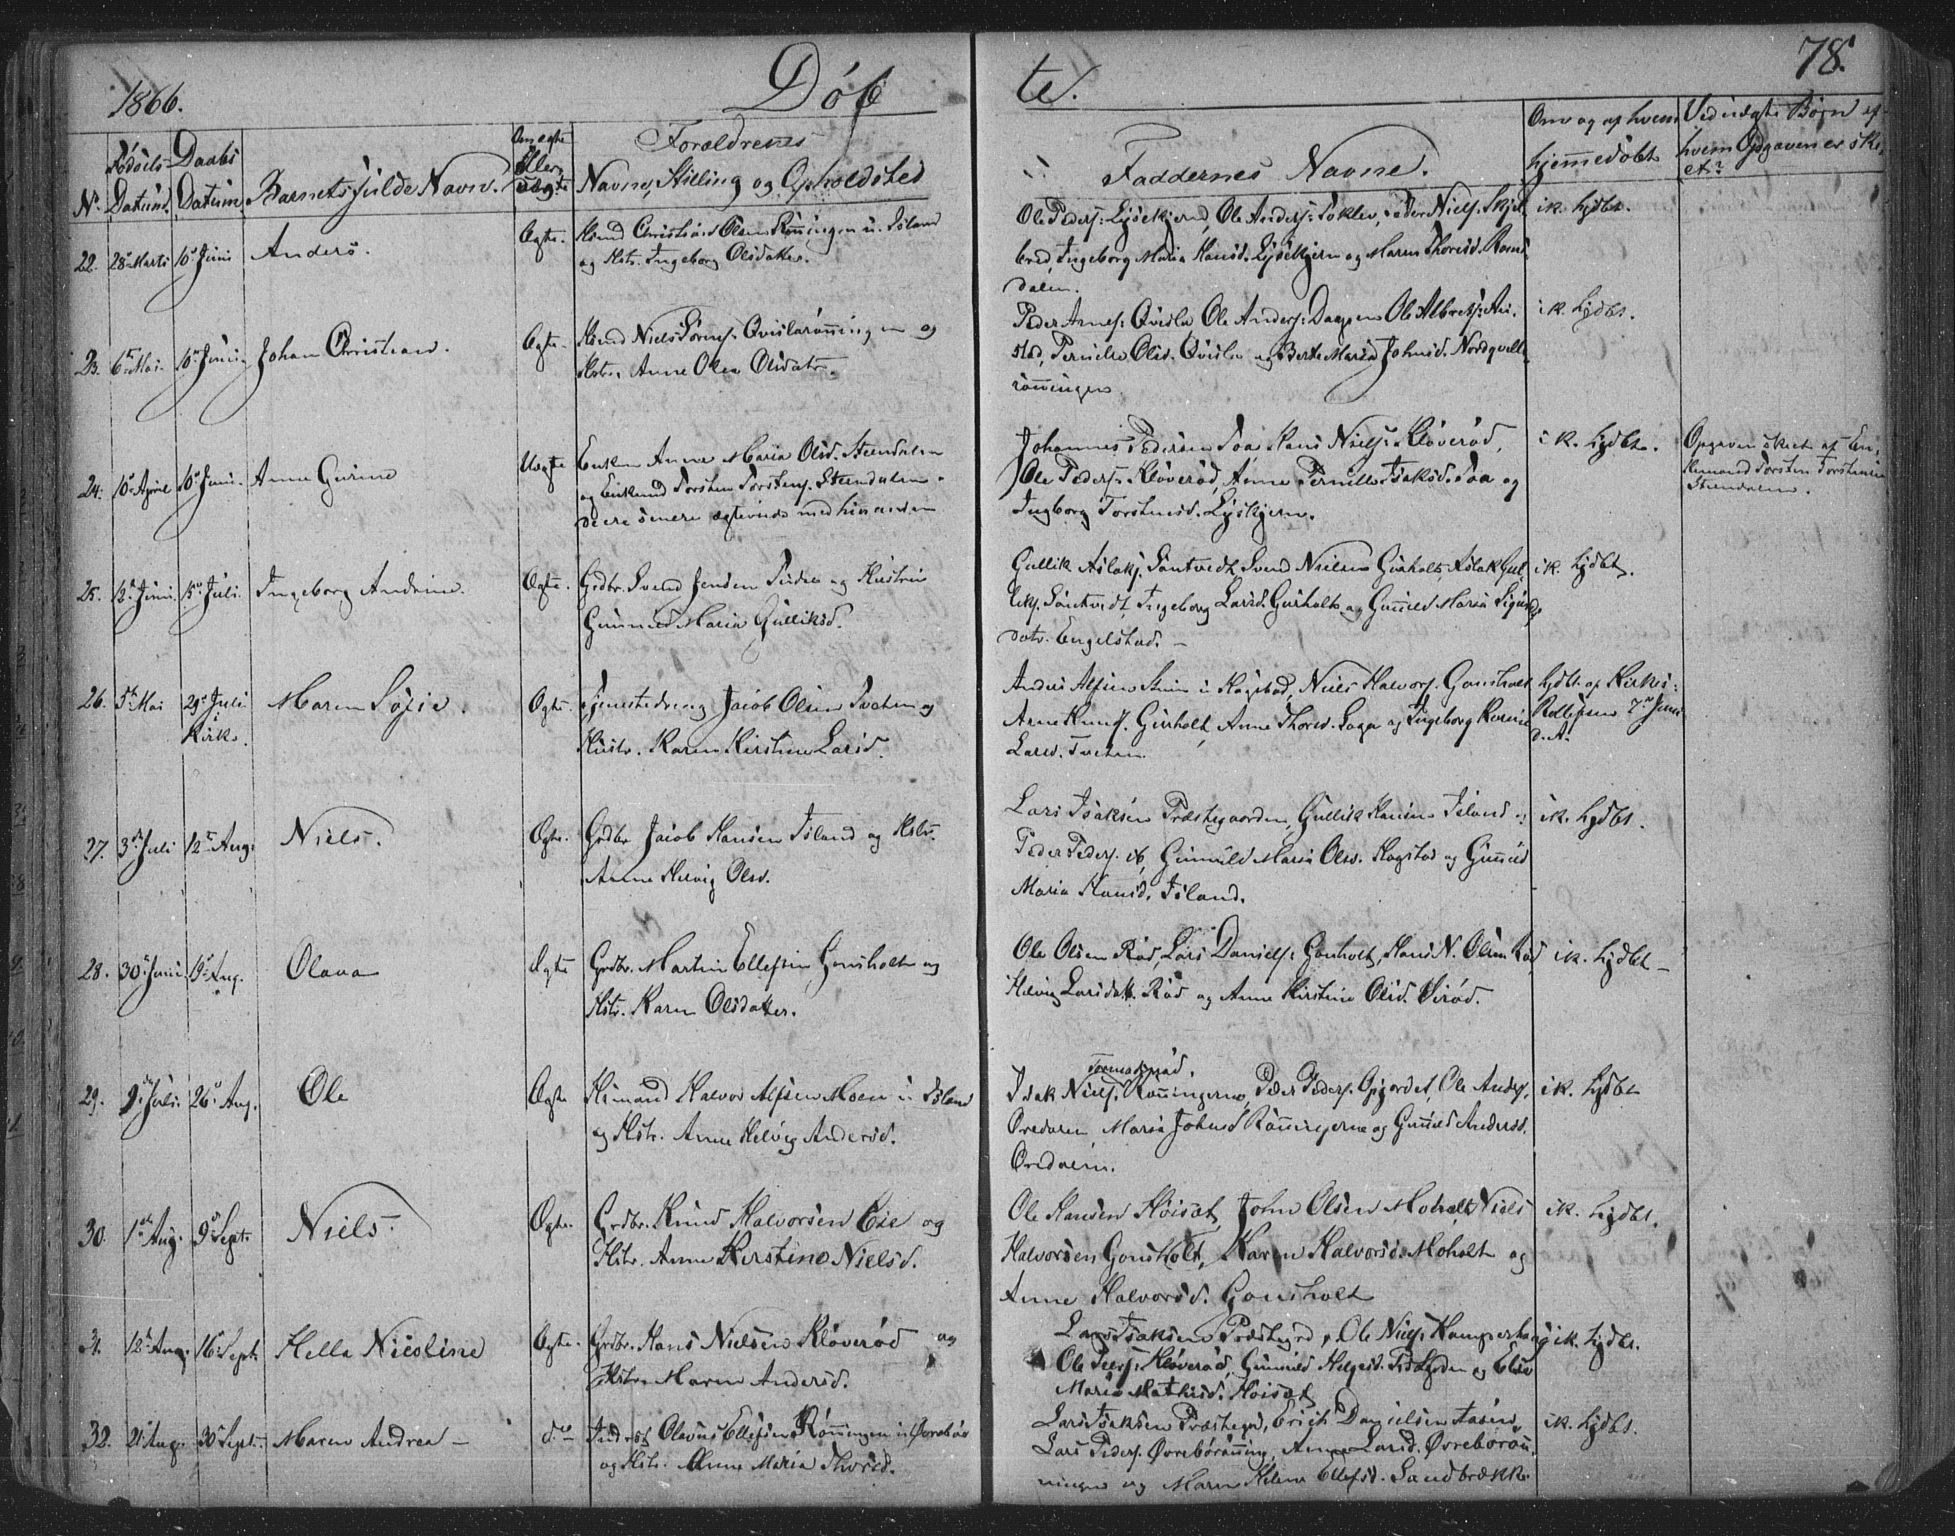 1866. Døbte. 78.
No. Fødsels Datum. Daabs Datum. Barnets fulde Navn. Om ægte Eller uægte Forældrenes Navne, Stilling og Opholdsted Faddernes Navne. Om og af hvem hjemmedøbt Ved uægte Børn af hvem Opgaven er skeet?
22. 28de Marts 10de Juni Anders. Ægte. Hmd Christian Olsen Rønningen u. Island
og Hstr. Ingeborg Olsdatter.
Ole Peders: Lysekjern, Ole Anders: Peder Niels. Skjel-
bred, Ingeborg Maria Hansd. Lysekjern og Maren Thoresd. Rams-
dalen.
ik. hjdbt.
23. 6te Mai. 10de Juni Johan Christian. Ægte. Hmd Niels Qvislarønningen og
Hstr. Anne Olea Olsdatr.
Peder Arnes: Qvisla Ole Anders: Ole Albrets:
Pernille Olsd. Qvisla og Berte Maria Johnsd. Nordqvelle-
rønningen
ik. hjdbt.
24. 10de April 10de Juni. Anne Gurine Uægte Enken Anne Maria Olsd. Steendalen
og Enkemd Torsten Torstens. Steendalen.
de ere senere ægteviede med hinanden
Johannes Pedersen Hans Niels: Kløverød,
Ole Peders. Kløverød, Anne Pernille Isaksd. og
Ingborg Torstensd. Lyskjern.
ik. hjdbt.
Opgaven skeet af En-
kemand Torsten Torstensen
Steendalen.
25. 12te Juni 15de Juli. Ingeborg Andrine. Ægte. Grdbr. Svend Jensen og Hustru
Gunnild Maria Gulliksd.
Gullik Aslaks. Søntvedt, Svend Nielsen Gurholt, Aslak Gul-
liks. Søntvedt, Ingeborg Larsd. Gurholt og Gunild Maria
datr. Engelstad. —
ik. hjdbt.
26. 5te Mai 29de Juli
i Kirk. Maren Sofie. Ægte. Tjenestedreng Jacob Olsen Tveten og
Hustr. Karen Kirstine Larsd.
Anders Alfsen i Hogstad, Niels Halvors. Gonsholt
Arne Knuds. Gurholt, Anne Thoresd. og Ingeborg
Larsd. Tveten
hjdbt. af Kirkes:
Rollefsen 7de Juni
d. A.
27. 3die Juli 12te Aug: Niels. Ægte. Grdbr Jacob Hansen Island og Hstr.
Anne Helvig Olsd.
Lars Isaksen Præstegaarden, Gullik Hansen Island
Peder Peders. ib, Gunnild Maria Olsd. Hogstad og Gunild
Maria Hansd. Island.
ik. hjdbt.
28. 30de Juni 19de Aug. Olava Ægte Grdbr. Martin Ellefsen Gonsholt og
Hstr. Karen Olsdatter.
Ole Olsen Rød, Lars Daniels: Gonholt, Hans N. Olsen Rød,
Helvig Larsdatt. Rød og Anne Kirstine Olsd. Virød.
ik. hjdbt —
29. 9de Juli. 26de Aug. Ole Ægte Hsmand Halvor Alfsen Moen u. Island
og Hstr. Anne Helvig Andersd.
Isak Niels. Rønningerne, Peder Peders. Opjordet, Ole Anders.
Øvedalen, Maria Johnsd Rønningerne og Gunild Andersd.
Øvedalen.
ik. hjdbt
30. 1ste Aug. 9de Sept. Niels. Ægte. Grdbr. Knud Halvorsen Eie og
Hstr. Anne Kirstine Nielsd.
Ole Hansen Høisæt, John Olsen Moholt, Niels
Halvorsen Gonsholt, Karen Halvorsd. Moholt og
Anne Halvorsd. Gonsholt
ik. hjdbt.
31. 12te Aug. 16de Sept. Hella Nicoline Ægte. Grdbr. Hans Nielsen Kløverød og
Hstr. Maren Andersd.
Lars Isaksen Præstegrd, Ole Niels. Kamperhaug
Ole Peders. Kløverød, Gunnild Helgesd. og Elen
Maria Mathisd. Høisæt
ik. hjdbt.
32. 21de Aug. 30de Sept. Maren Andrea — do — Inderst Olavus Ellefsen Rønningen u. Øvrebøe
og Hstr. Anne Maria Thorsd.
Lars Isaksen Præstegrd, Erich Danielsen
Lars Peders. Øvrebørønning, Anne Larsd. Øvrebørøn-
ningen og Maren Helene Ellefsd. Sandbrække
ik. hjdbt.